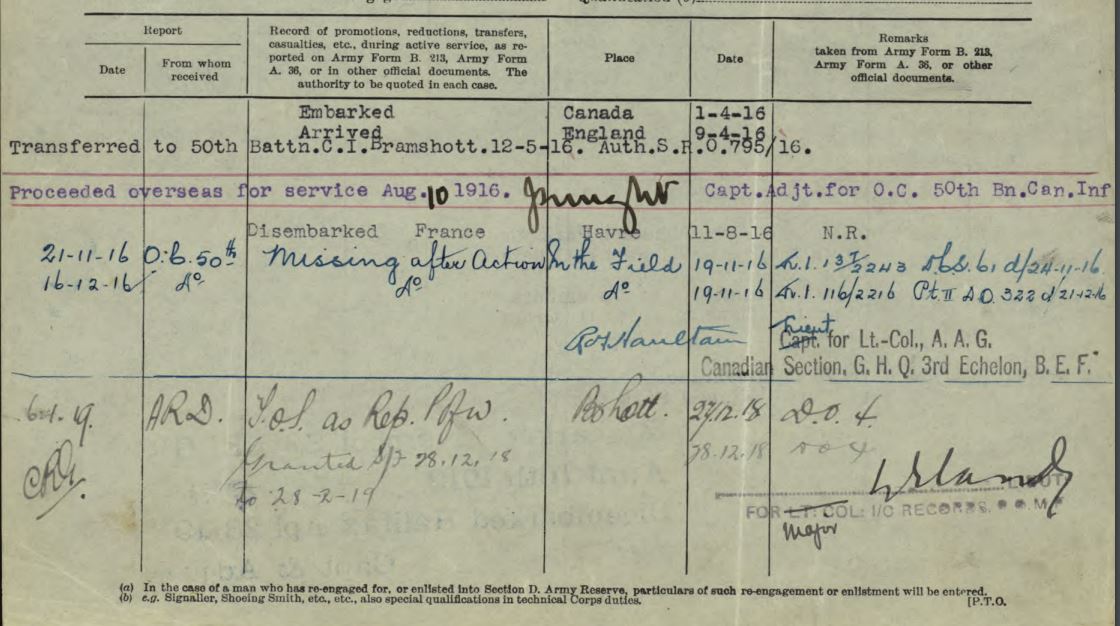 Report
Date
From whom received
Record of promotions, reductions, transfers,
casualties, etc., during active service, as re-
ported on Army Form B. 213, Army Form
A. 36, or in other official documents. The
authority to be quoted in each case.
Place
Date
Remarks
taken from Army Form B. 213,
Army Form A. 36, or other
official documents.
Embarked Canada 1-4-16
Arrived England 9-4-16
Transferred to 50th Battn.C.I.Bramshott.12-5-16. Auth.S.R.O.795/16.
Proceeded overseas for service Aug.10 1916. Capt.Adjt.for O.C. 50th Bn.Can.Inf
Disembarked France Havre 11-8-16 N.R.
21-11-16 O.C. 50th Missing after Action In the Field 19-11-16 d/24-11-16.
16-12-16 Do Do Do 19-11-16 116/2216 Pt II D.O. 322 d/21-12-16
Lieut
Capt. for Lt.-Col., A. A. G.
Canadian Section, G. H. Q. 3rd Echelon, B. E. F.
ARD. T.O.S. as Rep. PofW. Bshott. 27.12.18 D.O. 4.
Granted 28.12.18 28.12.18 DO 4
To 28-2-19
LIEUT
FOR LT: COL: I/C RECORDS.
Major
(a) In the case of a man who has re-engaged for, or enlisted into Section D. Army Reserve, particulars of such re-engagement or enlistment will be entered.
(b) e.g. Signaller, Shoeing Smith, etc., etc., also special qualifications in technical Corps duties.
[P.T.O.